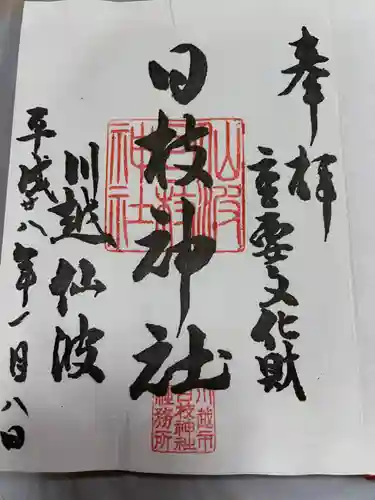 奉拝
重要文化財
日枝神社
川越仙波
平成廿八年一月八日
仙波
日枝
神社
川越市
日枝神社
社務所